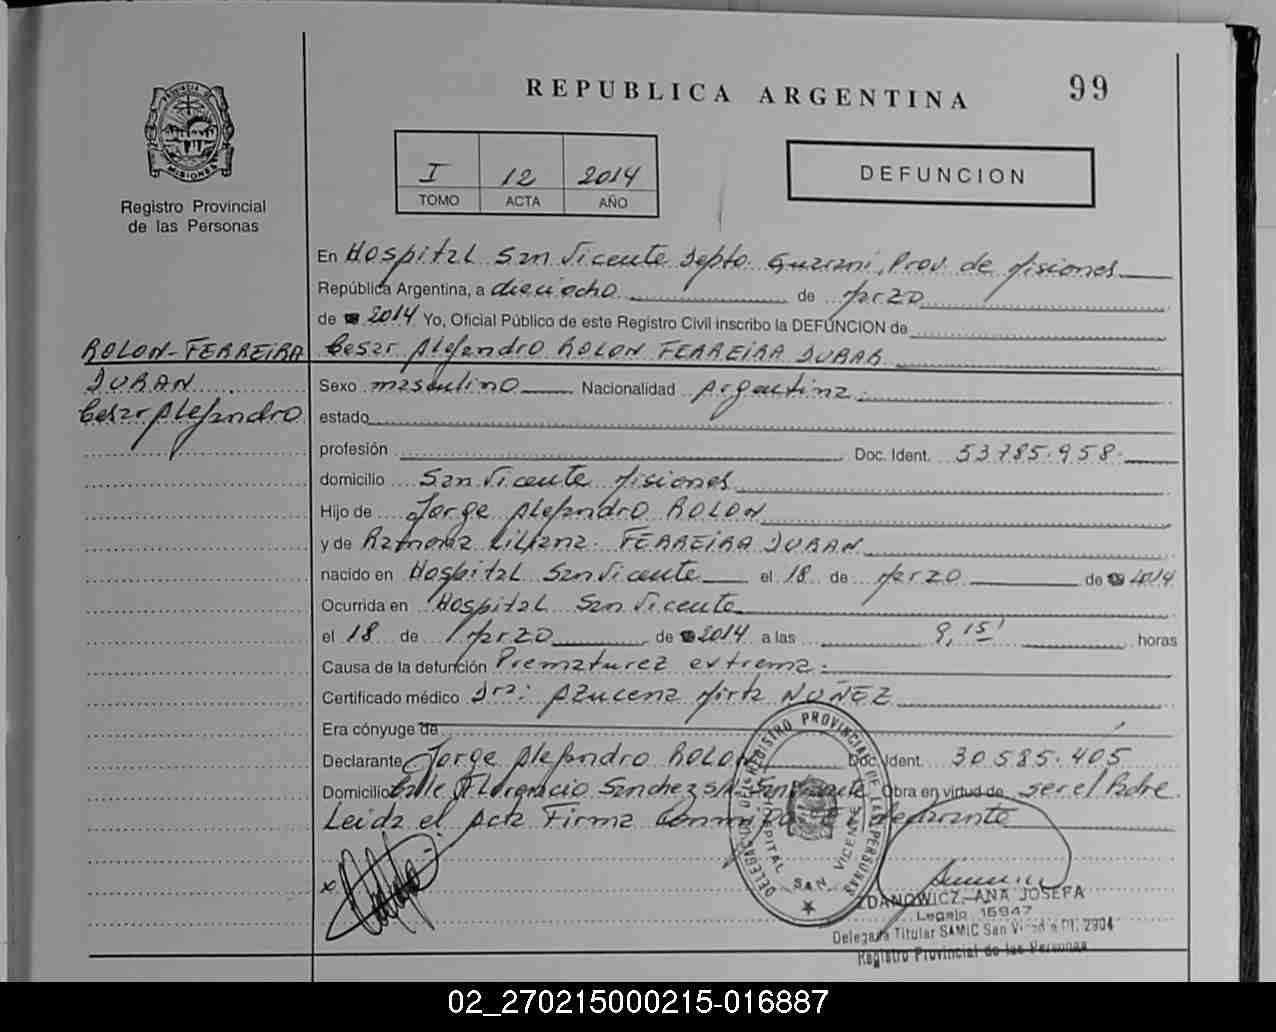 PROVINCIA DE
MISIONES
Registro Provincial
de las Personas
REPUBLICA ARGENTINA
99
I 12 2014
TOMO ACTA AÑO
DEFUNCION
En Hospital San Vicente Depto. Guarani, Prov. de Misiones
República Argentina, a dieciocho de Marzo
de 2014 Yo, Oficial Público de este Registro Civil inscribo la DEFUNCION de
ROLON-FERREIRA
DURAN
Cesar Alejandro
Cesar Alejandro ROLON FERREIRA DURAN
Sexo masculino Nacionalidad Argentina.
estado
profesión Doc. Ident. 53785.958.
domicilio San Vicente Misiones
Hijo de Jorge Alejandro ROLON
y de Ramona Liliana. FERREIRA DURAN
nacido en Hospital San Vicente el 18 de Marzo de 2014
Ocurrida en Hospital San Vicente
el 18 de Marzo de 2014 a las 9,15' horas
Causa de la defunción Prematurez extrema.
Certificado médico Dra: Azucena Mirta NUÑEZ
Era cónyuge de
Declarante Jorge Alejandro ROLON Doc. Ident. 30585.405
Domicilio Calle Sanchez S/N San Vicente Obra en virtud de ser el Padre.
Leida el Acta Firma Conmigo el declarante
REGISTRO PROVINCIAL DE LAS PERSONAS
HOSPITAL SAN VICENTE
x
ZDANOWICZ, ANA JOSEFA
Legajo 16947
Delegada Titular SAMIC San Vicente Dl. 2904
Registro Provincial de las Personas
02_270215000215-016887